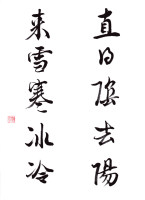 直日陰去陽
来雪寒冰冷